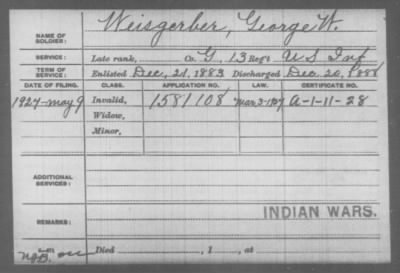 NAME OF SOLDIER: Weisgerber, George W.
SERVICE: Late rank, Co. G, 13 Reg't U S Inf
TERM OF SERVICE: Enlisted Dec. 21, 1883 Discharged Dec. 20, 1888
DATE OF FILING. CLASS. APPLICATION NO. LAW. CERTIFICATE NO.
1927-May 9 Invalid, 1581108 Mar. 3-1927 A-1-11-28
Widow,
Minor,
ADDITIONAL SERVICES:
INDIAN WARS.
REMARKS:
Died , 1 , at